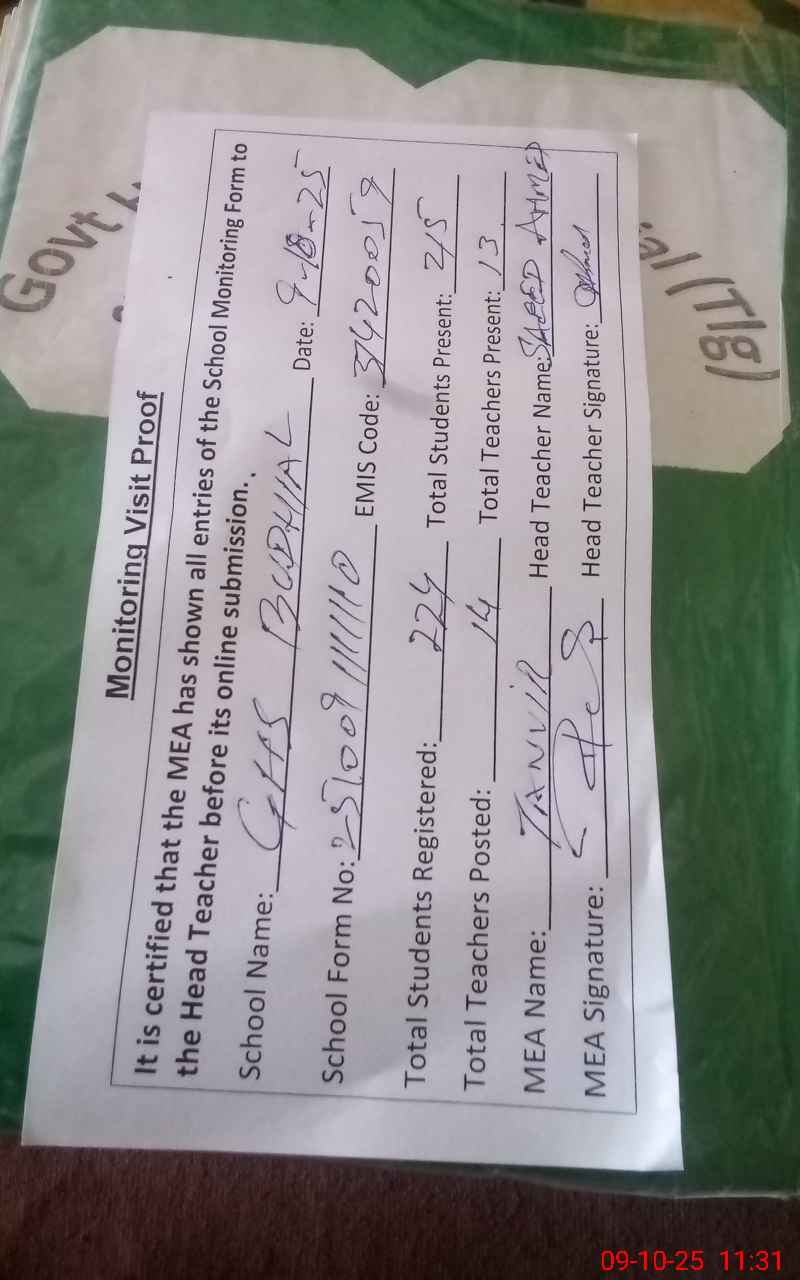 Monitoring Visit Proof
It is certified that the MEA has shown all entries of the School Monitoring Form to
the Head Teacher before its online submission..
School Name: GHS BUDHIAL Date: 9-10-25
School Form No: 251009111110 EMIS Code: 37420059
Total Students Registered: 224 Total Students Present: 215
Total Teachers Posted: 14 Total Teachers Present: 13
MEA Name: TANVIR Head Teacher Name: SAEED AHMED
MEA Signature: Head Teacher Signature:
Govt
09-10-25 11:31